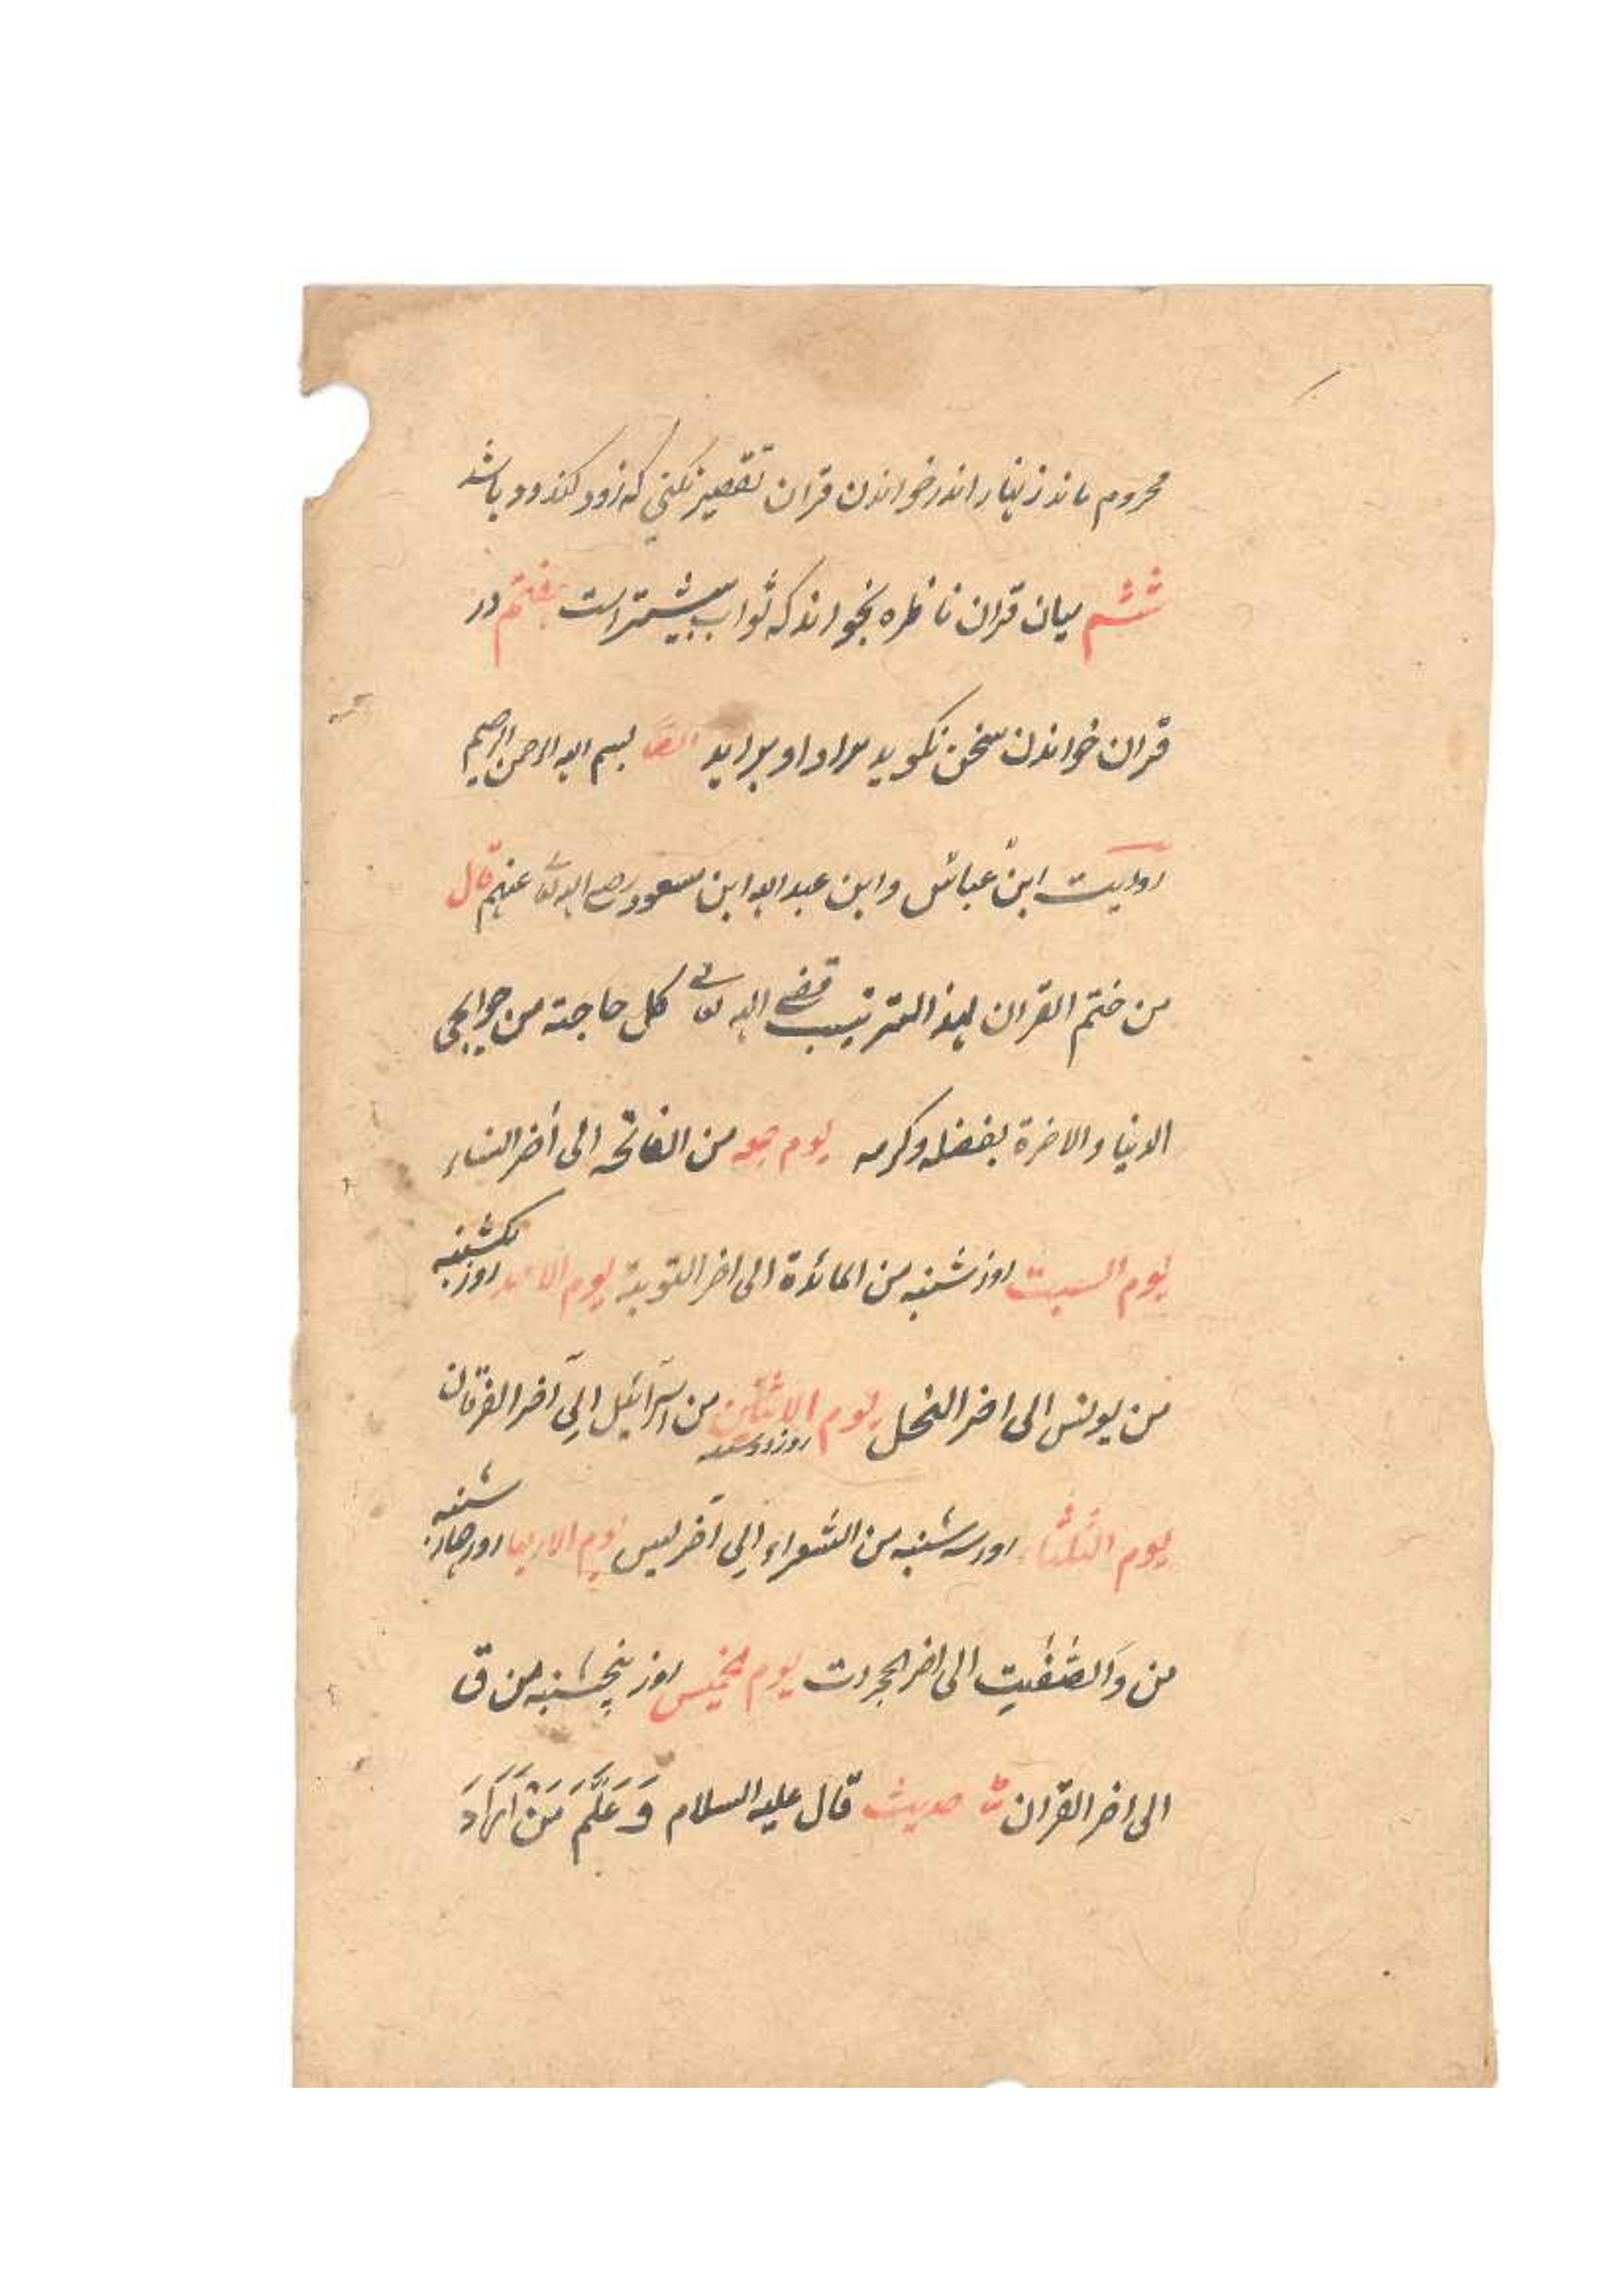 محروم ماند زنهار اندر خواندن قران تقصیر نکنی که زود کند ود باشد
ششم میان قران ناظره بخواند که ثواب بیشتر است هفتم در
قران خواندن سخن نکوید مراد او براید ایضا بسم الله الرحمن الرحیم
روایت ابن عباس وابن عبد الله ابن مسعود رضی الله تعالی عنهم قال
من ختم القران لهذا الترتیب قضی الله تعالی کل حاجة من حوایج
الدنیا والاخرة بفضله وکرمه یوم جمعه من الفاتحه الی أخر النساء
یوم السبت روز شنبه من المائدة الی اخر التوبة یوم الاحد روز یکشنبه
من یونس الی اخر النحل یوم الاثنین روز دوشنبه من اسرائیل الی آخر الفرقان
یوم الثلثاء روز سه شنبه من الشعراء الی آخر لیس یوم الاربعا روز چهار شنبه
من والصّفّیت الی اخر الحجرات یوم الخمیس روز پنجشنبه من ق
الی اخر القران حدیث قال علیه السلام وَعَلَّمَ مَنْ اَرَادَ